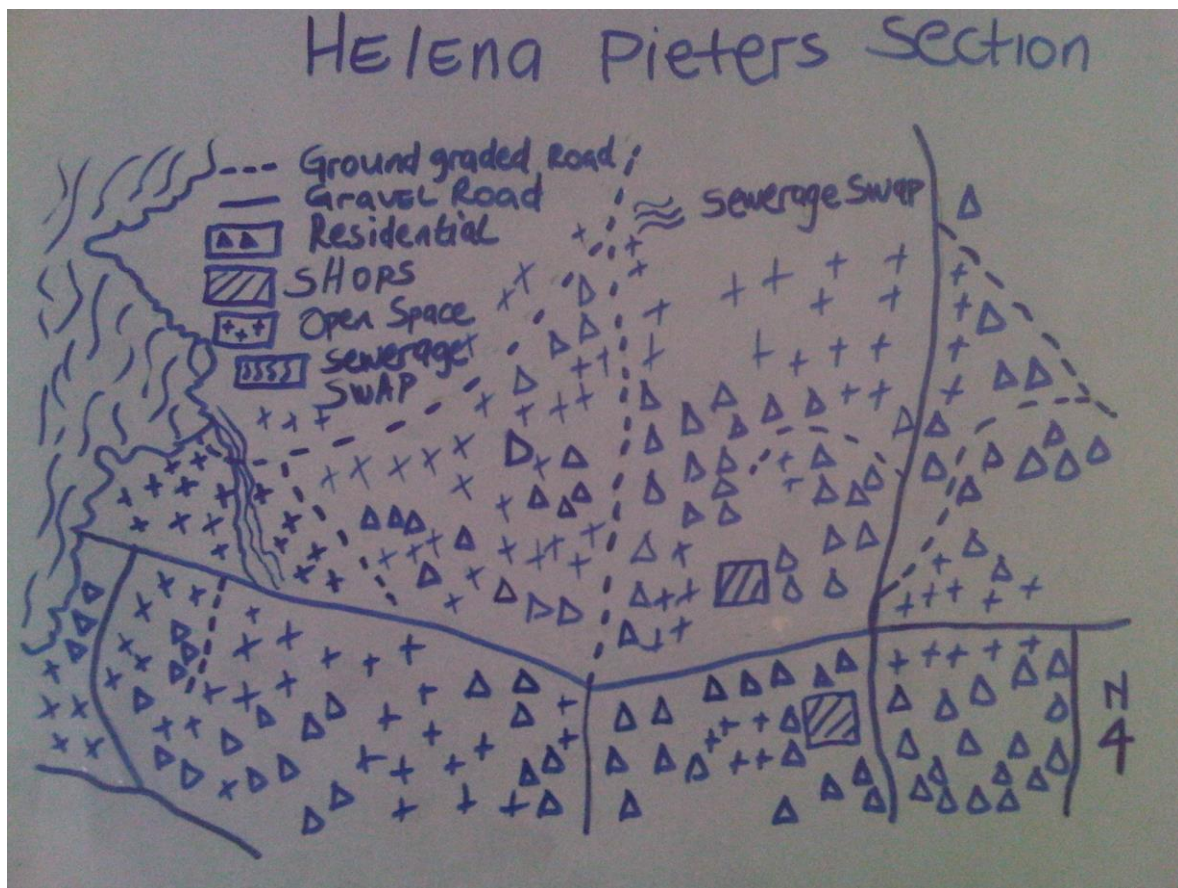 HElEna Pieters Section
Ground graded Road
GravEL Road
Residential
SHOPS
Open Space
sewerage
SWAP
sewerage Swap
N
4